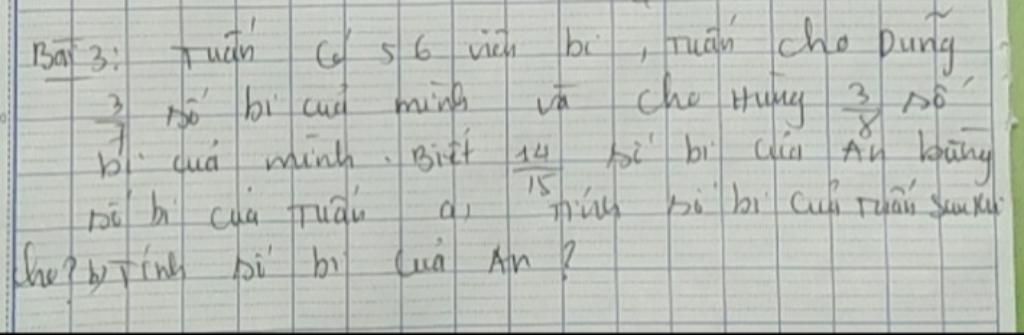 Bài 3: Tuấn có 56 viên bi, Tuấn cho Dũng
3/7 số bi của mình và cho Hùng 3/8 số
bi của mình. Biết 14/15 số bi của An bằng
số bi của Tuấn a, Tính số bi của Tuấn sau khi
cho? b, Tính số bi của An?